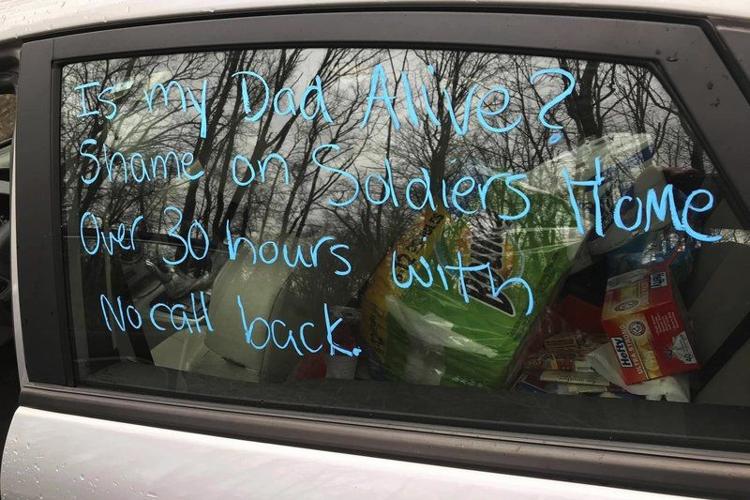 Is my Dad Alive?
Shame on Soldiers Home
Over 30 hours with
No call back.
Hefty